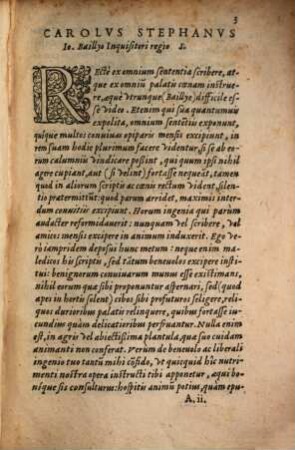 3
CAROLVS STEPHANVS
Io. Baillyo Inquisitori regio S.
RECTE ex omnium sententia scribere, at-
que ex omniũ palatu cœnam instrue-
re, æquè vtrunque, Baillye, difficile es-
se video. Etenim qui sua quantumuis
expolita, omnium sentẽtiis exponunt,
quíque multos conuiuas opiparis mensis excipiunt, in
rem suam hodie plurimum facere videntur, si se ab eo-
rum calumniis vindicare possint, qui quum ipsi nihil
agere cupiant, aut (si velint) fortasse nequeāt, tamen
quod in aliorum scriptis ac cœnis rectum vident, silen-
tio prætermittũt: quod parum arridet, maximis inter-
dum conuitiis excipiunt. Horum ingenia qui parum
audacter reformidauerit: nunquam vel scribere, vel
amicos mensis excipere in animum induxerit. Ego ve-
rò iampridem deposui hunc metum: neque enim ma-
ledicos his scriptis, sed tãtùm beneuolos excipere insti-
tui: benignorum conuiuarum munus esse existimans,
nihil eorum quæ sibi proponuntur aspernari, sed (quod
apes in hortis solent) cibos sibi profuturos seligere, reli-
quos durioribus palatis relinquere, quibus fortasse iu-
cundius quàm delicatioribus perfruantur. Nulla enim
est, in agris vel abiectissima plantula, quæ suo cuidam
animanti non conferat. Verùm de beneuolo ac liberali
ingenio tuo tantũ mihi cõfido, vt quicquid hîc nutri-
menti nostra opera instructi tibi apponetur, æqui bo-
níque sis consulturus: hospitis animũ potius, quàm epu-
A.ii.